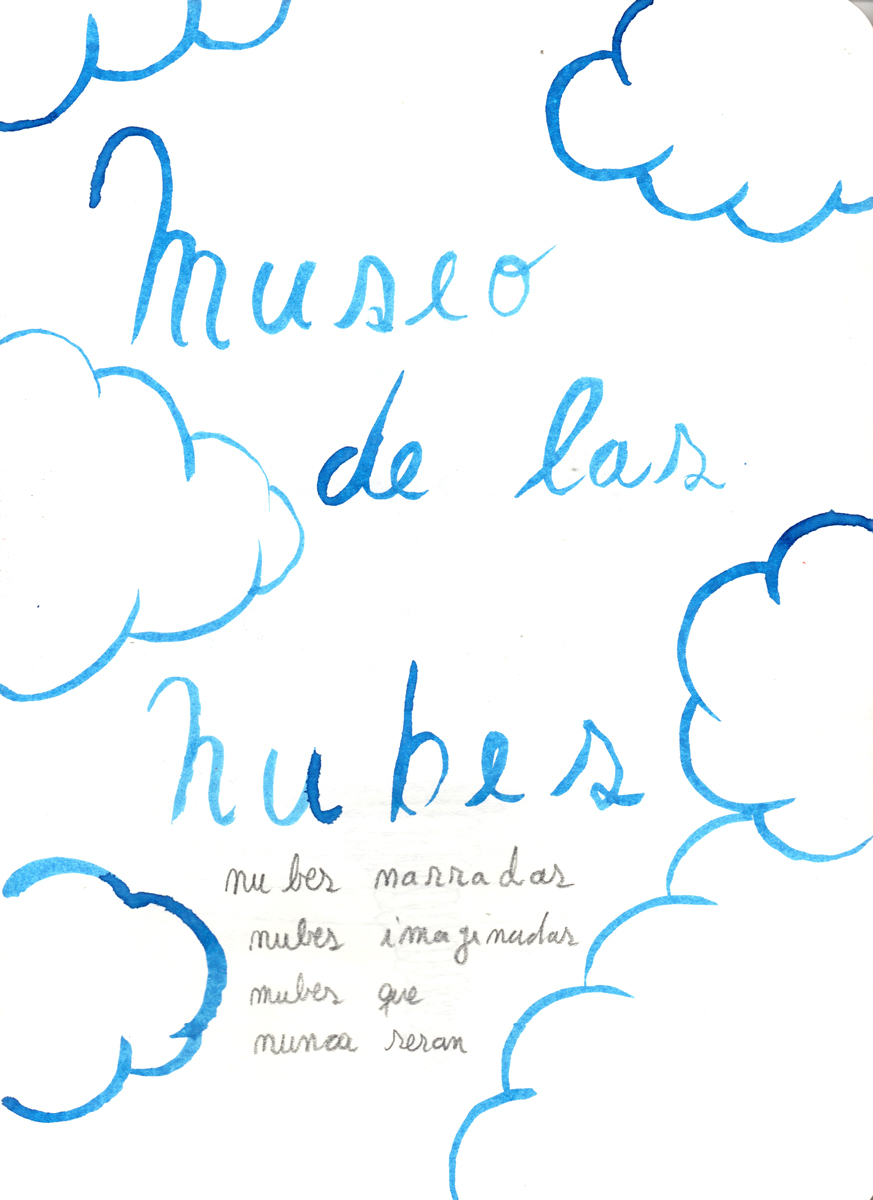 Museo
de las
nubes
nubes narradas
nubes imaginadas
nubes que
nunca seran